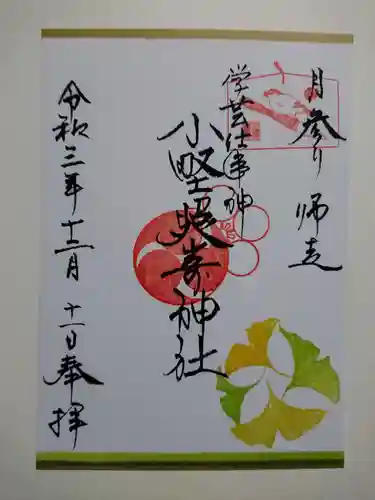 月参り 師走
学芸仕事神
小野照崎神社
令和三年十二月十一日奉拝